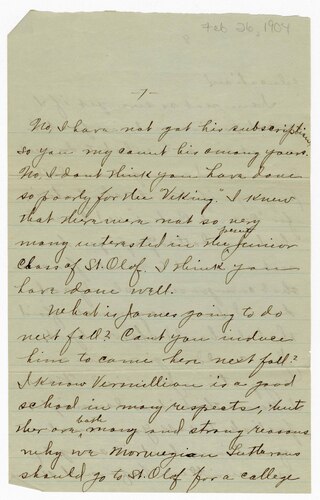 Feb 26, 1904
8
-7-
No, I have not got his subscription
so you my count his among yours.
No, I dont think you have done
so poorly for the "Viking." I knew
that there were not so very
many interested in the present junior
class of St. Olof. I think you
have done well.
What is James going to do
next fall? Cant you induce
him to come here next fall?
I know Vermillion is a good
school in many respects, but
ther are both many and strong reasons
why we Norwegian Lutherans
should go to St. Olof for a college